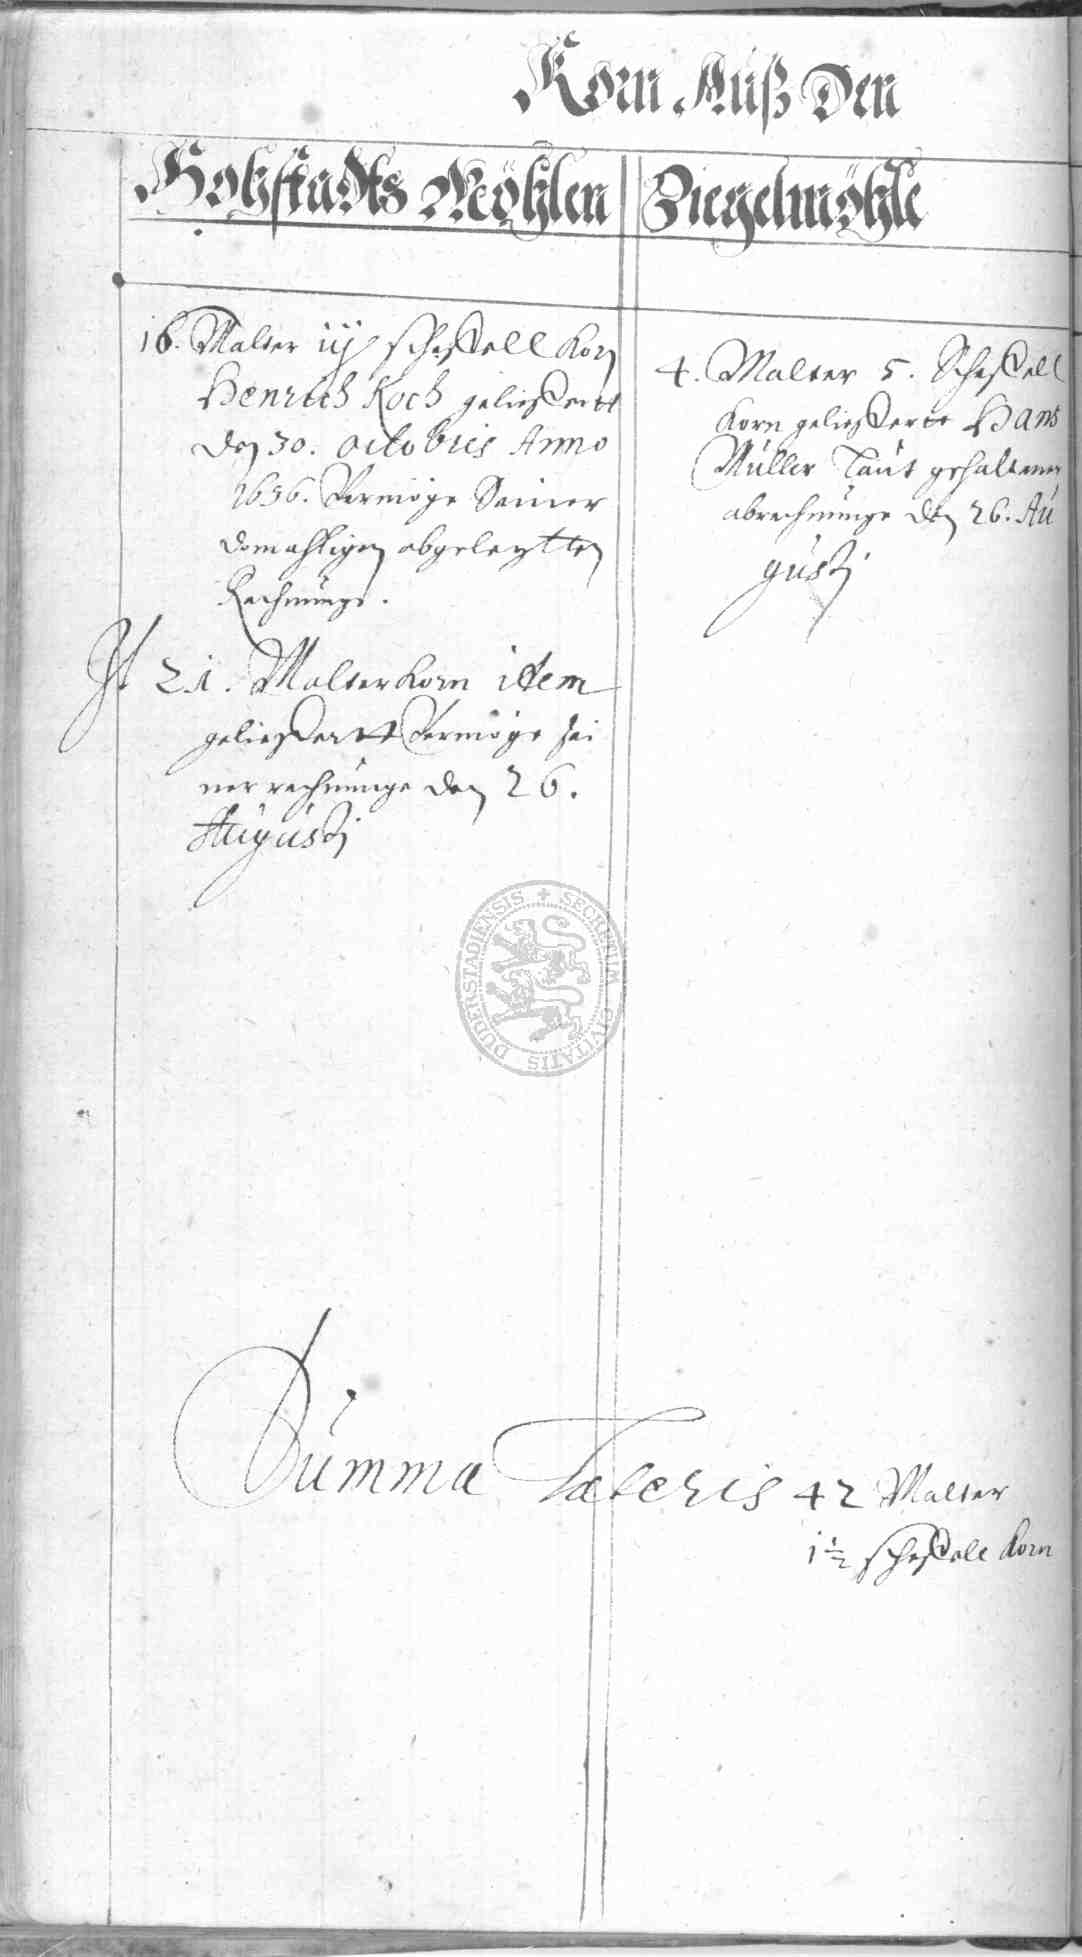 Korn Auß Den
Hohstadts Möhlen
Ziegelmöhle
16. Malter iij schessell Korn
Henrich Koch geliessertt
den 30. octobris Anno
1656. Vermöge Seiner
domahligen abgelegtten
Rechnunge.
It 21. Malter Korn item
geliessertt Vermöge sei
ner rechnunge den 26.
Augusti
4. Malter 5. Schessell
Korn geliesserte Hans
Müller Laut gehaltener
abrechnunge den 26. Au
gusti
SECRETUM CIVITATIS DUDERSTADIENSIS
Summa Lateris 42 Malter
1 1/2 schessell Korn